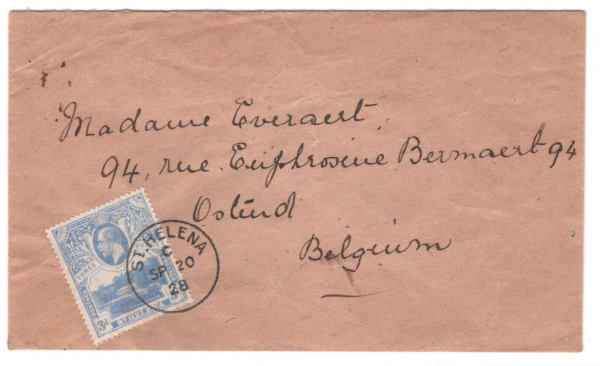 Madame Everaert
94, rue Euphrosine Bermaert 94
Ostend
Belgium
ST. HELENA
C
SP 20
28
3d